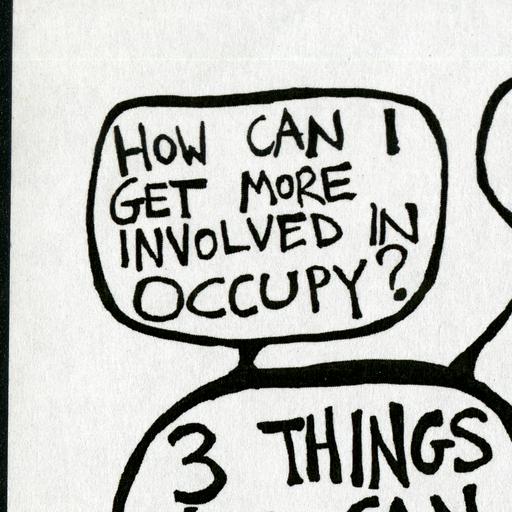 HOW CAN I
GET MORE
INVOLVED IN
OCCUPY?
3 THINGS
CAN